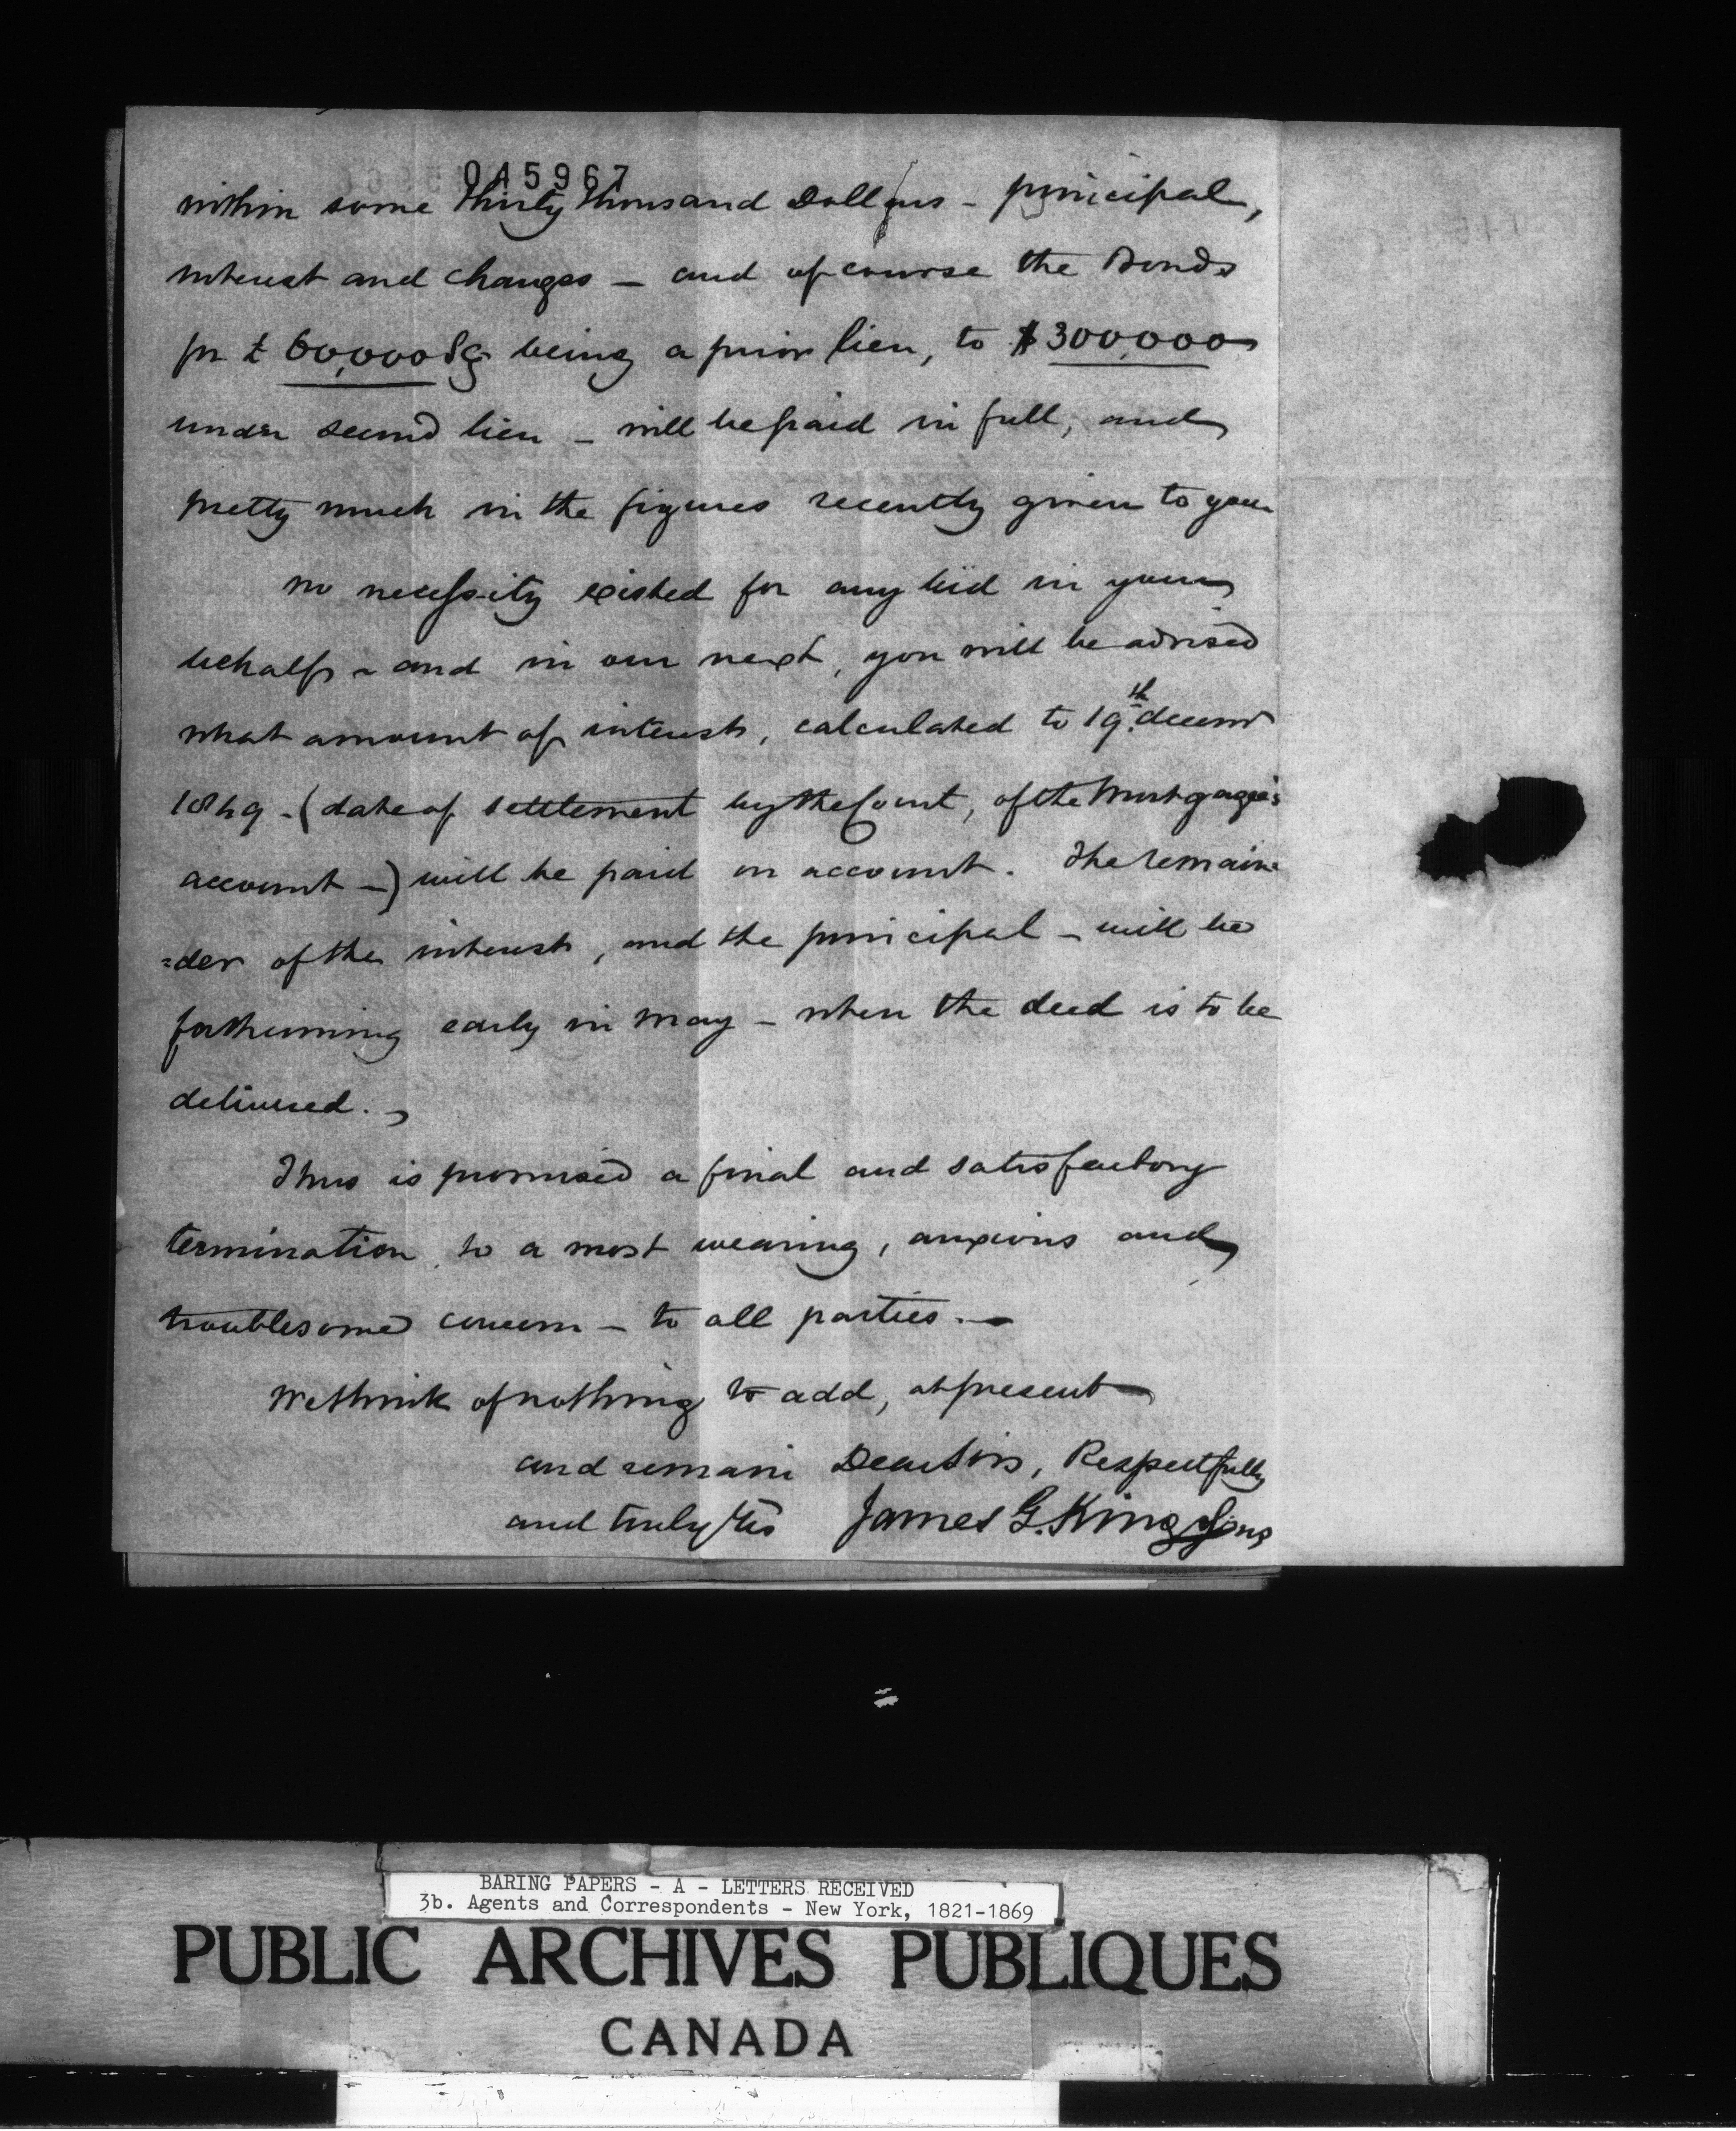 045967
within some thirty thousand Dollars - principal,
interest and charges - and of course the Bonds
for £ 60,000 Sg being a prior lien, to $300,000
under second lien - will be paid in full, and
pretty much in the figures recently given to you
no necessity existed for any bid in your
behalf - and in our next, you will be advised
what amount of interest, calculated to 19th. decemr
1849 - (date of settlement by the Court, of the Mortgagee's
account -) will be paid on account. The remain-
=der of the interest, and the principal - will be
forthcoming early in May - when the deed is to be
delivered.
Thus is promised a final and satisfactory
termination to a most wearing, anxious and
troublesome concern - to all parties. -
We think of nothing to add, at present
and remain Dear Sirs, Respectfully
and truly Yrs James G. King & Sons
BARING PAPERS - A - LETTERS RECEIVED
3b. Agents and Correspondents - New York, 1821-1869
PUBLIC ARCHIVES PUBLIQUES
CANADA